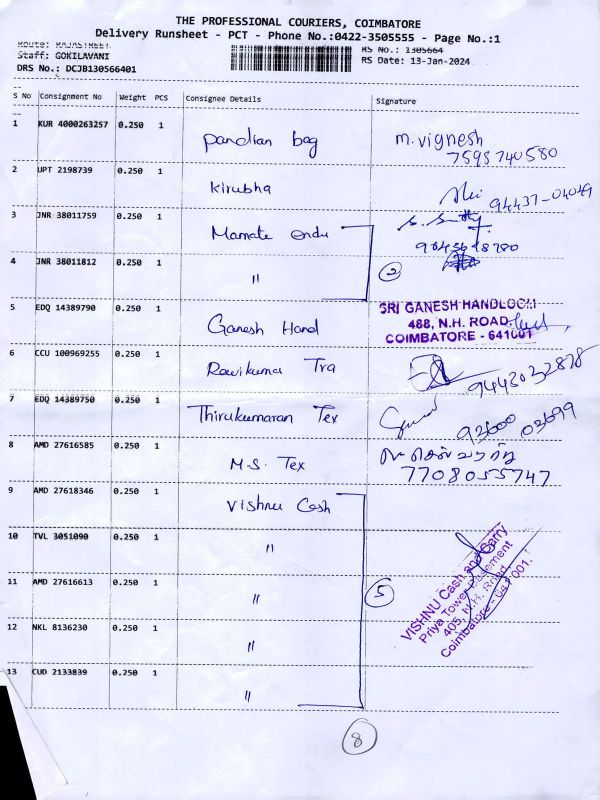 THE PROFESSIONAL COURIERS, COIMBATORE
Delivery Runsheet - PCT - Phone No.:0422-3505555 - Page No.:1
Route: RAJASTREET
RS No.: 1305664
Staff: GOKILAVANI
RS Date: 13-Jan-2024
DRS No.: DCJB130566401
S No Consignment No Weight PCS Consignee Details Signature
1 KUR 4000263257 0.250 1 Pandian bag m. vignesh
7598740580
2 UPT 2198739 0.250 1 Kirubha 94437-04049
3 JNR 38011759 0.250 1 Mamate
4 JNR 38011812 0.250 1 " 2
5 EDQ 14389790 0.250 1 Ganesh Hand SRI GANESH HANDLOOM
488, N.H. ROAD
COIMBATORE - 641001
6 CCU 100969255 0.250 1 Ravikuma Tra 9443032878
7 EDQ 14389750 0.250 1 Thirukumaran Tex 93600 03699
8 AMD 27616585 0.250 1 M.S. Tex
7708055747
9 AMD 27618346 0.250 1 Vishnu Cash
10 TVL 3051090 0.250 1 "
11 AMD 27616613 0.250 1 " 5
VISHNU Cash and Carry
Priya Tower Basement
405, N.H. Road,
Coimbatore - 641 001.
12 NKL 8136230 0.250 1 "
13 CUD 2133839 0.250 1 "
8